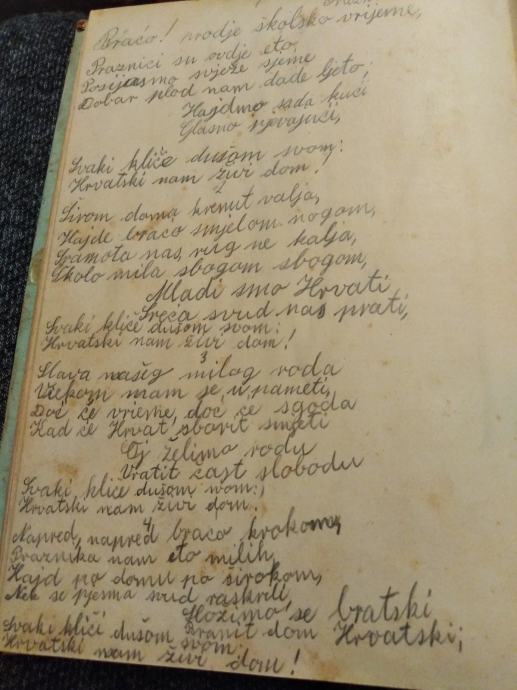 Braćo! prodje školsko vrijeme,
Praznici su ovdje eto,
Posijasmo svježe sjeme
Dobar plod nam dade ljeto,
Hajdmo sada kući
Glasno pjevajući,
Svaki kliče dušom svom:
Hrvatski nam živi dom!
2
Širom doma krenut valja,
Hajde braćo smjelom nogom,
Sramota nas, rug ne kalja,
Školo mila sbogom sbogom,
Mladi smo Hrvati
Sreća svud nas prati,
Svaki kliče dušom svom:
Hrvatski nam živi dom!
3
Slava našeg milog roda
Uvjekom nam je u pameti,
Doć će vrieme, doć će sgoda
Kad će Hrvat sborit smjeti
Oj želimo rodu
Vratit čast slobodu
Svaki kliče dušom svom:,
Hrvatski nam živi dom.
4
Napred, napred braćo krokom,
Praznika nam eto milih,
Hajd po domu po širokom,
Nek se pjesma svud raskrili,
Složimo se bratski
Branit dom Hrvatski;
Svaki kliči dušom svom:
Hrvatski nam živi dom!